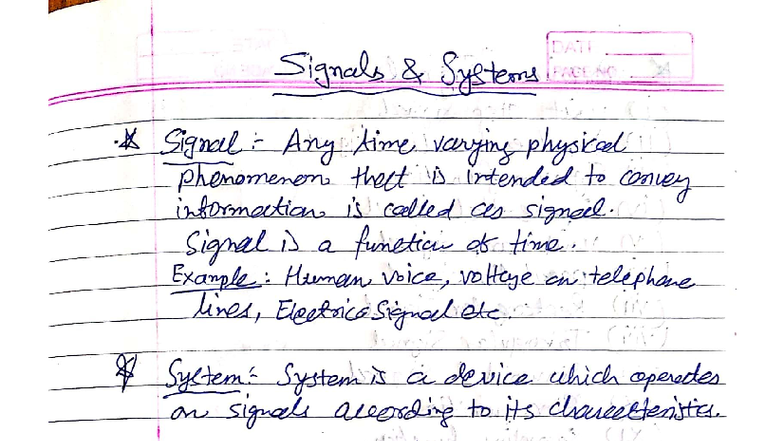 Signals & Systems
DATE
PAGE NO.
* Signal :- Any time varying physical
phenomenon that is intended to convey
information is called as signal.
Signal is a function of time.
Example : Human voice, voltage on telephone
lines, Electrica Signal etc.
* System :- System is a device which operates
on signals according to its characteristics.